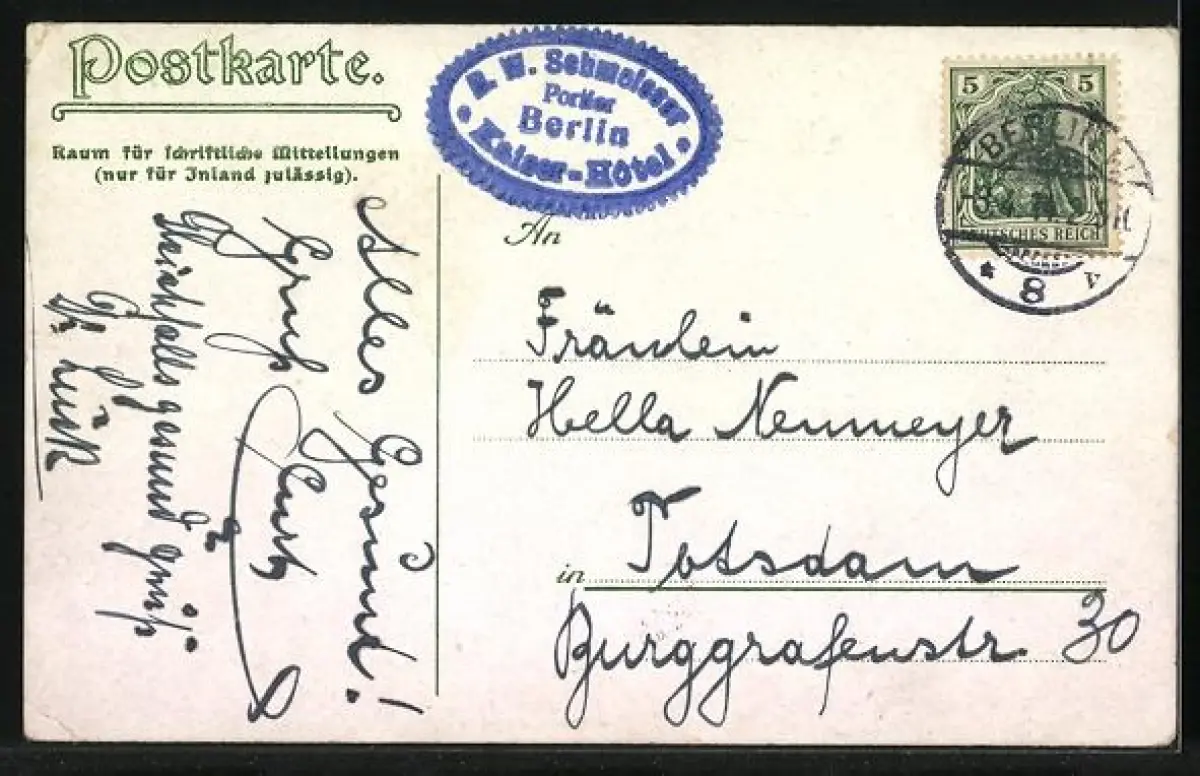 Postkarte.
Raum für schriftliche Mitteilungen
(nur für Inland zulässig).
R. W. Schmeisser
Portier
Berlin
Kaiser-Hôtel
5 5
DEUTSCHES REICH
BERLIN
8 V
An
Fräulein
Hella Neumeyer
in Potsdam
Burggrafenstr 30
Alles Gesund!
Gruß Curt
Gleichfalls gesund grüßt